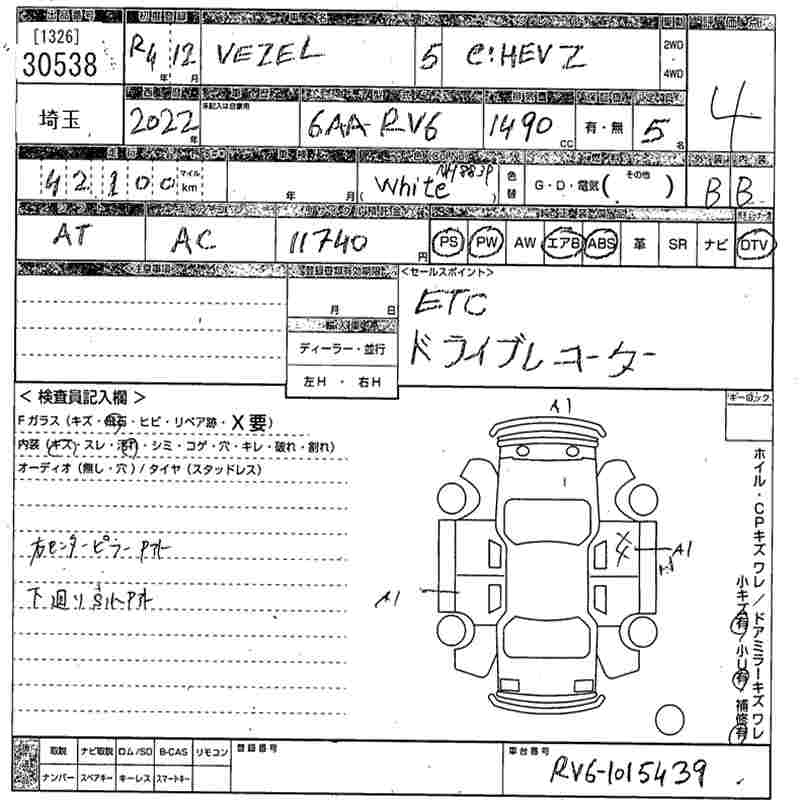 [1326]
30538
R4 12
年 月
VEZEL
5
e:HEV Z
2WD
・
4WD
4
埼玉
2022
年
未記入は自家用
6AA-RV6
1490
CC
有・無
5
名
42100
マイル
km
年 月
White
NH883P
色替
G・D・電気( その他 )
B B
AT
AC
11740
円
PS PW AW エアB ABS 革 SR ナビ DTV
注意事項
登録書類有効期限
月 日
輸入車
ディーラー・並行
左H ・ 右H
<セールスポイント>
ETC
ドライブレコーダー
<検査員記入欄>
キーロック
Fガラス(キズ・飛石・ヒビ・リペア跡・X要)
内装(キズ・スレ・汚れ・シミ・コゲ・穴・キレ・破れ・割れ)
オーディオ(無し・穴)/タイヤ(スタッドレス)
右センターピラーアト
下廻り
A1
A1
A1
ホイル・CPキズワレ/ドアミラーキズワレ
小キズ有/小U有/補修有
取説 ナビ取説 ロム/SD B-CAS リモコン
ナンバー スペアキー キーレス スマートキー
登録番号
車台番号
RV6-1015439